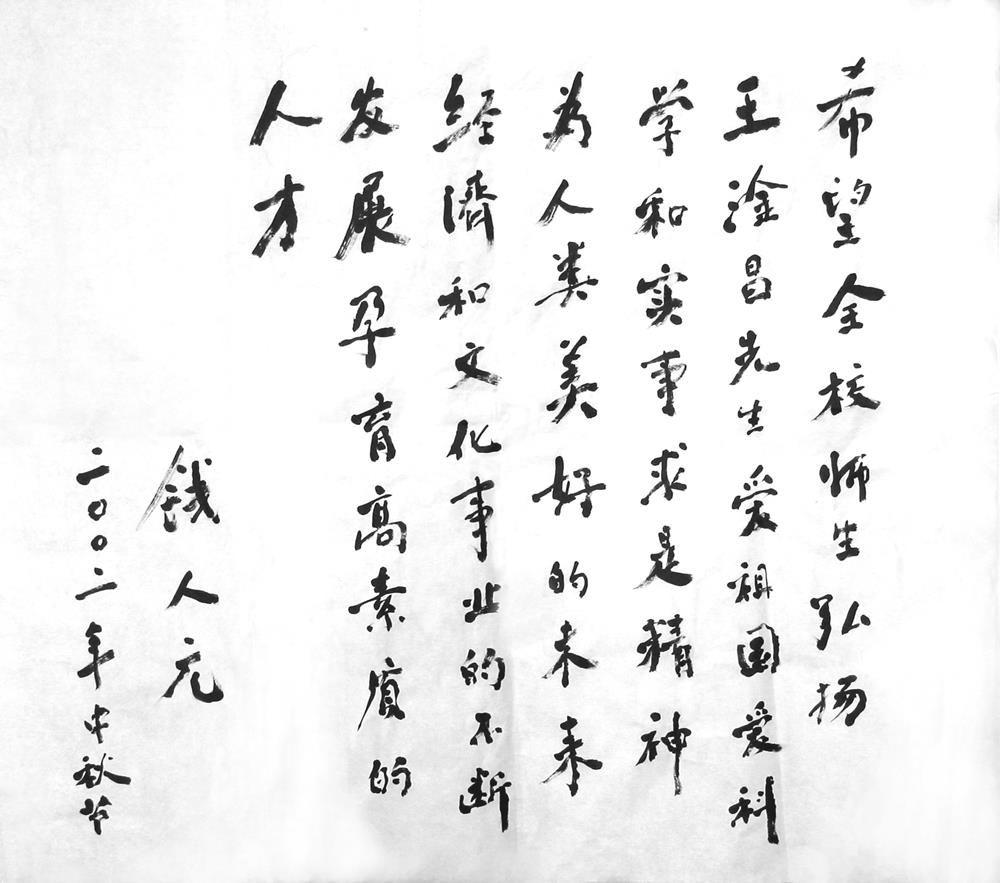 希望全校师生弘扬
王淦昌先生爱祖国爱科
学和实事求是精神
为人类美好的未来
经濟和文化事业的不断
发展孕育高素质的
人才
钱人元
二〇〇二年中秋节